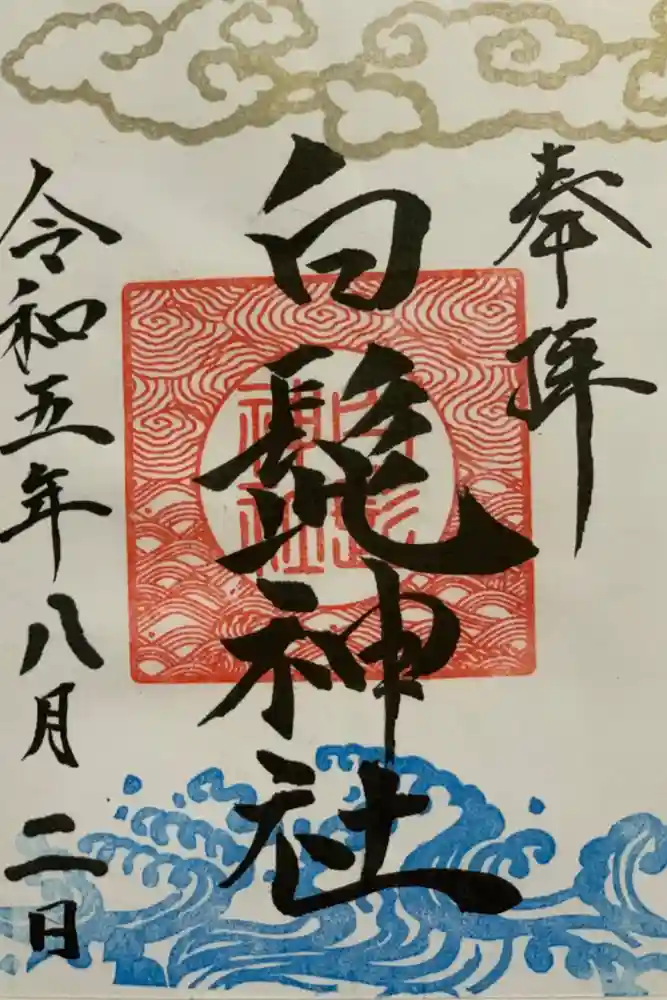 奉拝
白髭神社
令和五年八月二日